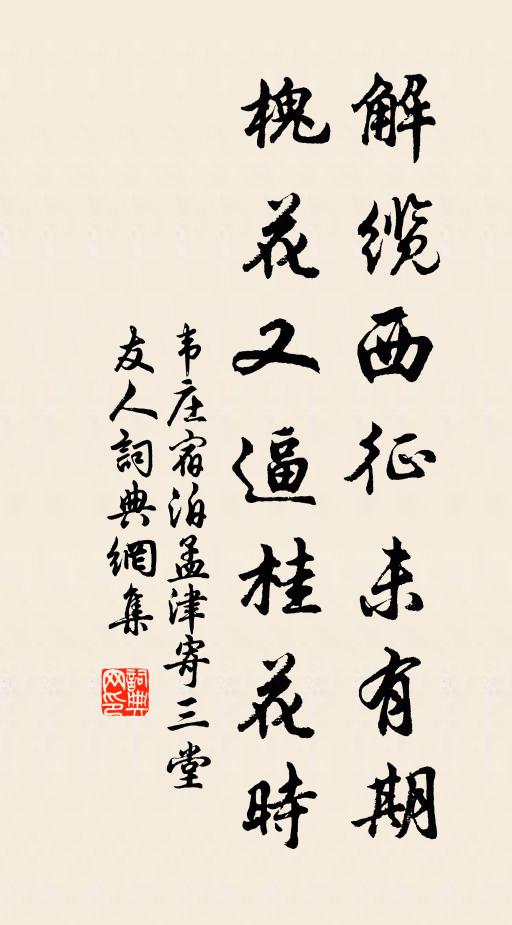 解缆西征未有期
槐花又逼桂花時
韦庄宿泊孟津寄三堂
友人詞典網集
詞典网印